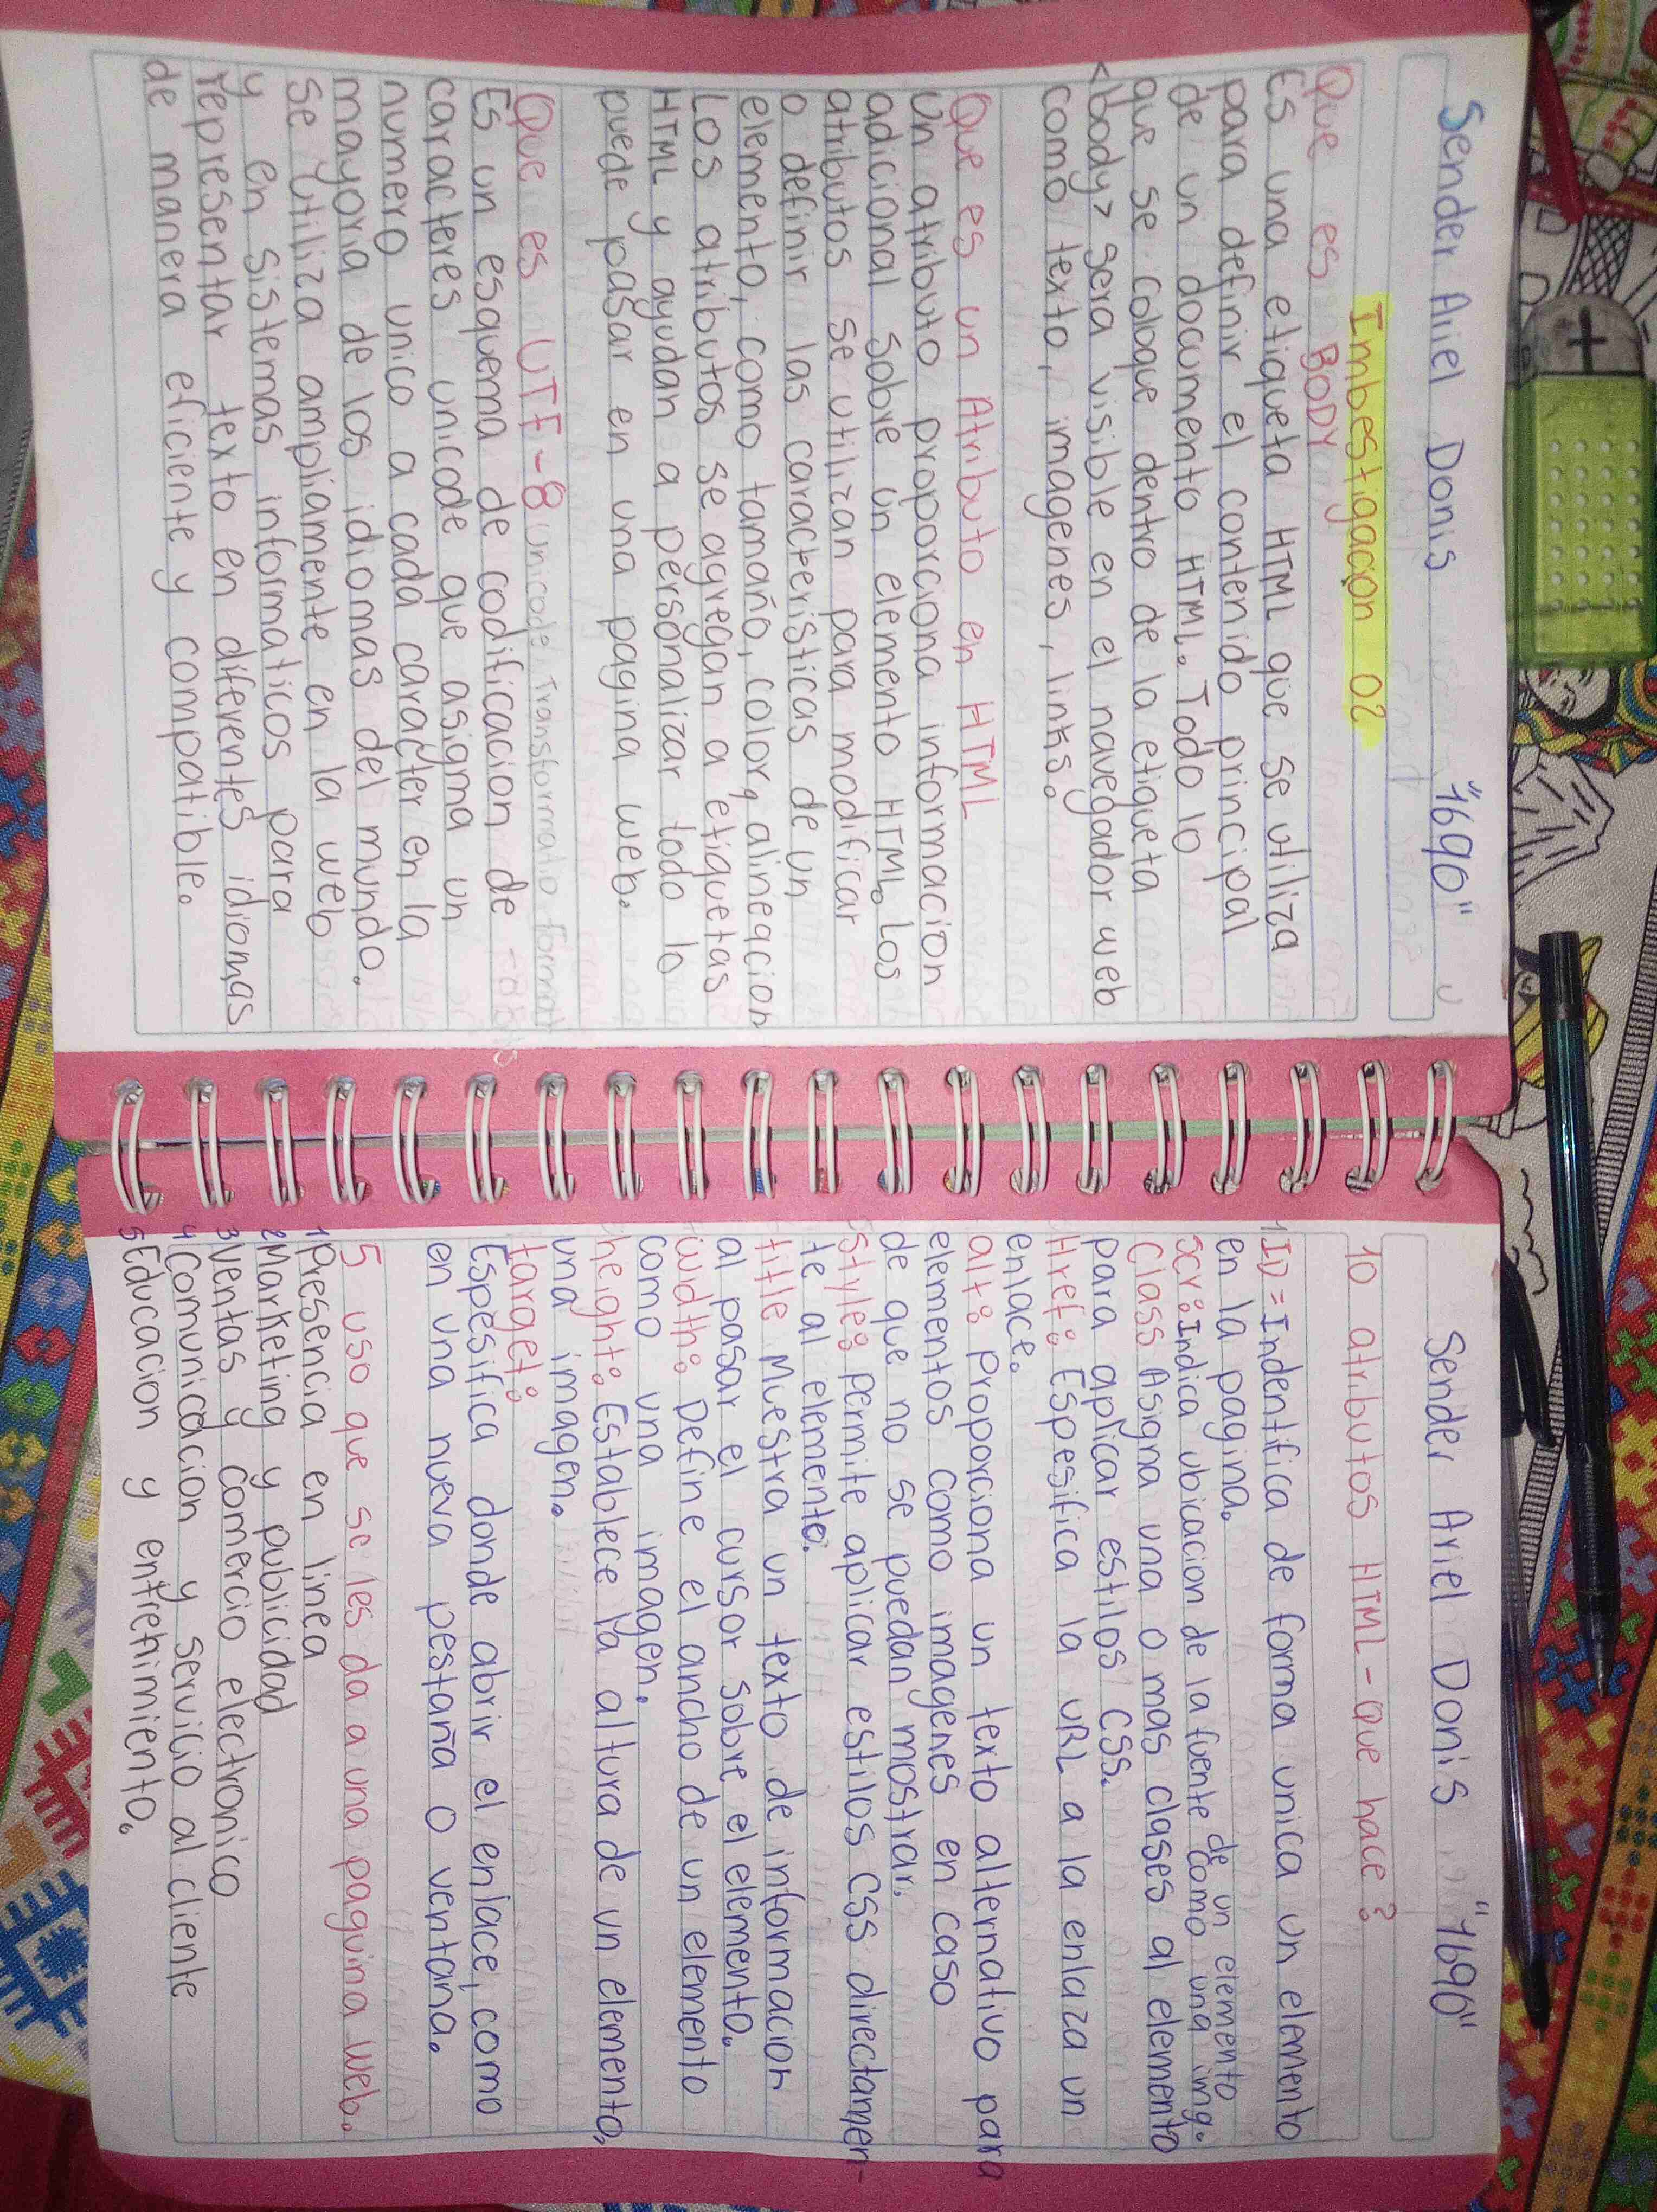 Sender Ariel Donis "1690"
Imbestigacion 02
Que es BODY
Es una etiqueta HTML que se utiliza
para definir el contenido principal
de un documento HTML. Todo lo
que se coloque dentro de la etiqueta
<body> sera visible en el navegador web
como texto, imagenes, links.
Que es un Atributo en HTML
Un atributo proporciona informacion
adicional sobre un elemento HTML. Los
atributos se utilizan para modificar
o definir las caracteristicas de un
elemento, como tamaño, color, alineacion
Los atributos se agregan a etiquetas
HTML y ayudan a personalizar todo lo
puede pasar en una pagina web.
Que es UTF-8 Unicode Transformatio format
Es un esquema de codificacion de
caracteres unicode que asigna un
numero unico a cada caracter en la
mayoria de los idiomas del mundo.
se utiliza ampliamente en la web
y en sistemas informaticos para
representar texto en diferentes idiomas
de manera eficiente y compatible.
Sender Ariel Donis "1690"
10 atributos HTML - Que hace?
1 ID = Indentifica de forma unica un elemento
en la pagina. de un elemento
scr: Indica ubicacion de la fuente como una img.
Class Asigna una o mas clases al elemento
para aplicar estilos CSS.
Href: Espesifica la URL a la enlaza un
enlace.
alt: proporciona un texto alternativo para
elementos como imagenes en caso
de que no se puedan mostrar.
style: permite aplicar estilos CSS directamen-
te al elemento.
title Muestra un texto de informacion
al pasar el cursor sobre el elemento.
width: Define el ancho de un elemento
como una imagen.
height: Establece la altura de un elemento,
una imagen.
target:
Espesifica donde abrir el enlace, como
en una nueva pestaña o ventana.
5 uso que se les da a una paguina web.
1 Presencia en linea
2 Marketing y pubicidad
3 Ventas y comercio electronico
4 Comunicacion y servicio al cliente
5 Educacion y entretenimiento.